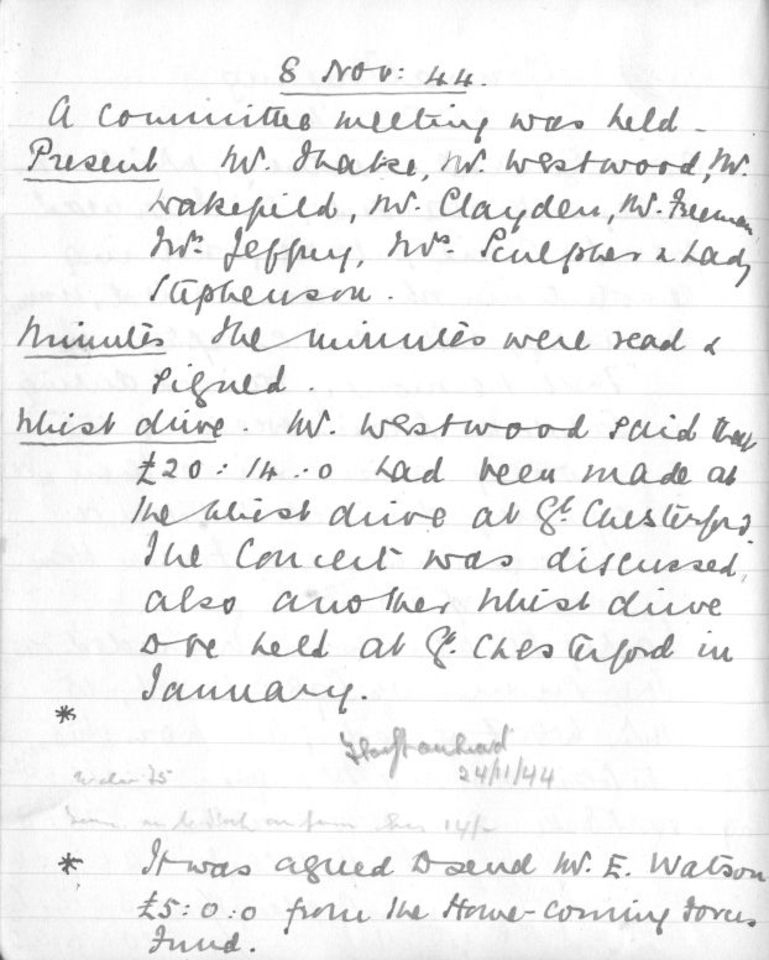 8 Nov: 44.
A committee meeting was held -
Present Mr. Thake, Mr. Westwood, Mr.
Wakefield, Mr. Clayden, Mr. Freeman
Mrs. Jeffrey, Mrs. Sculpher & Lady
Stephenson.
Minutes The minutes were read &
signed.
Whist drive. Mr. Westwood said that
£20:14:0 had been made at
the whist drive at Gt. Chesterford.
The Concert was discussed,
also another whist drive
to be held at Gt. Chesterford in
January.
*
24/11/44
14/-
* It was agreed to send Mr. E. Watson
£5:0:0 from the Home-coming Forces
Fund.